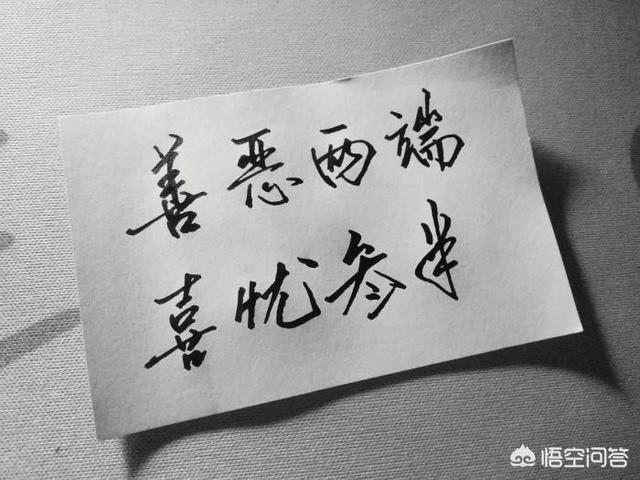 善恶两端
喜忧参半
悟空问答